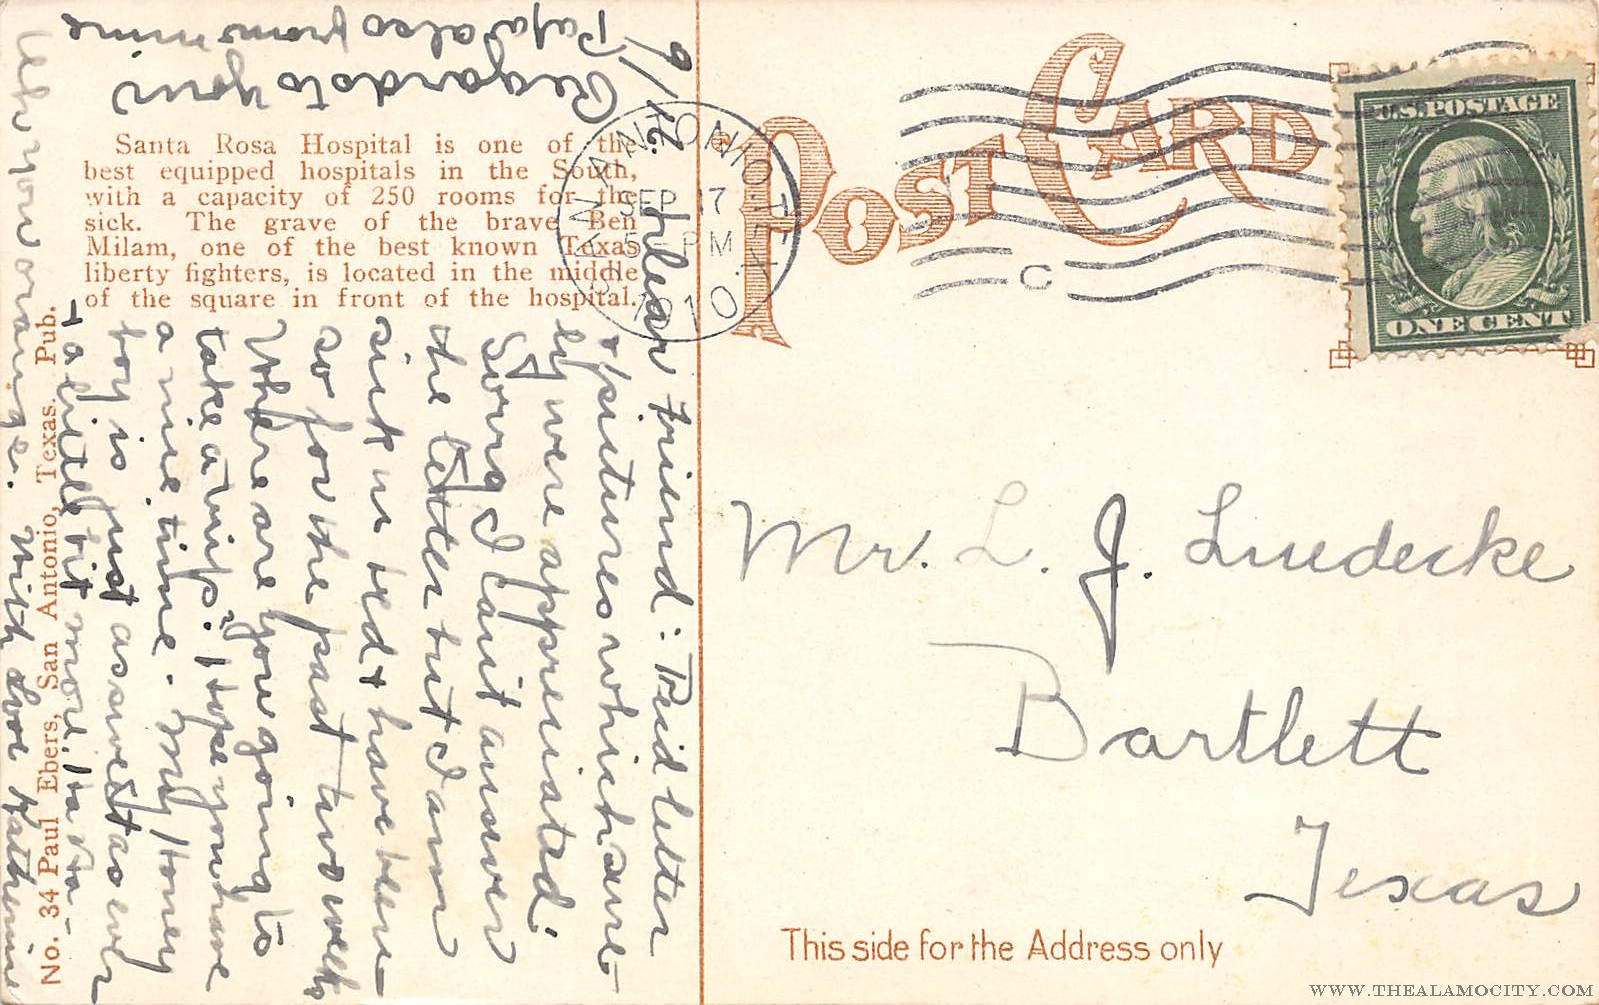 POST CARD
U.S. POSTAGE
ONE CENT
SAN ANTONIO, TEX.
SEP 17
5 PM
1910
C
Santa Rosa Hospital is one of the
best equipped hospitals in the South,
with a capacity of 250 rooms for the
sick. The grave of the brave Ben
Milam, one of the best known Texas
liberty fighters, is located in the middle
of the square in front of the hospital.
No. 34 Paul Ebers, San Antonio, Texas. Pub.
9/16. Dear friend: Recid letter
+ pictures which sure-
ly were appreciated.
Sorry I cant answer
the letter but I am
sick in bed + have been
so for the past two weeks
Where are you going to
take a trip? I hope you have
a nice time. My Honey
boy is just as sweet as ever
+ a little bit more. Ha Ha-
Why you orange. With Love Katherine
Regards to your
Papa also from mine
Mr. L. J. Luedecke
Bartlett
Texas
This side for the Address only
WWW.THEALAMOCITY.COM